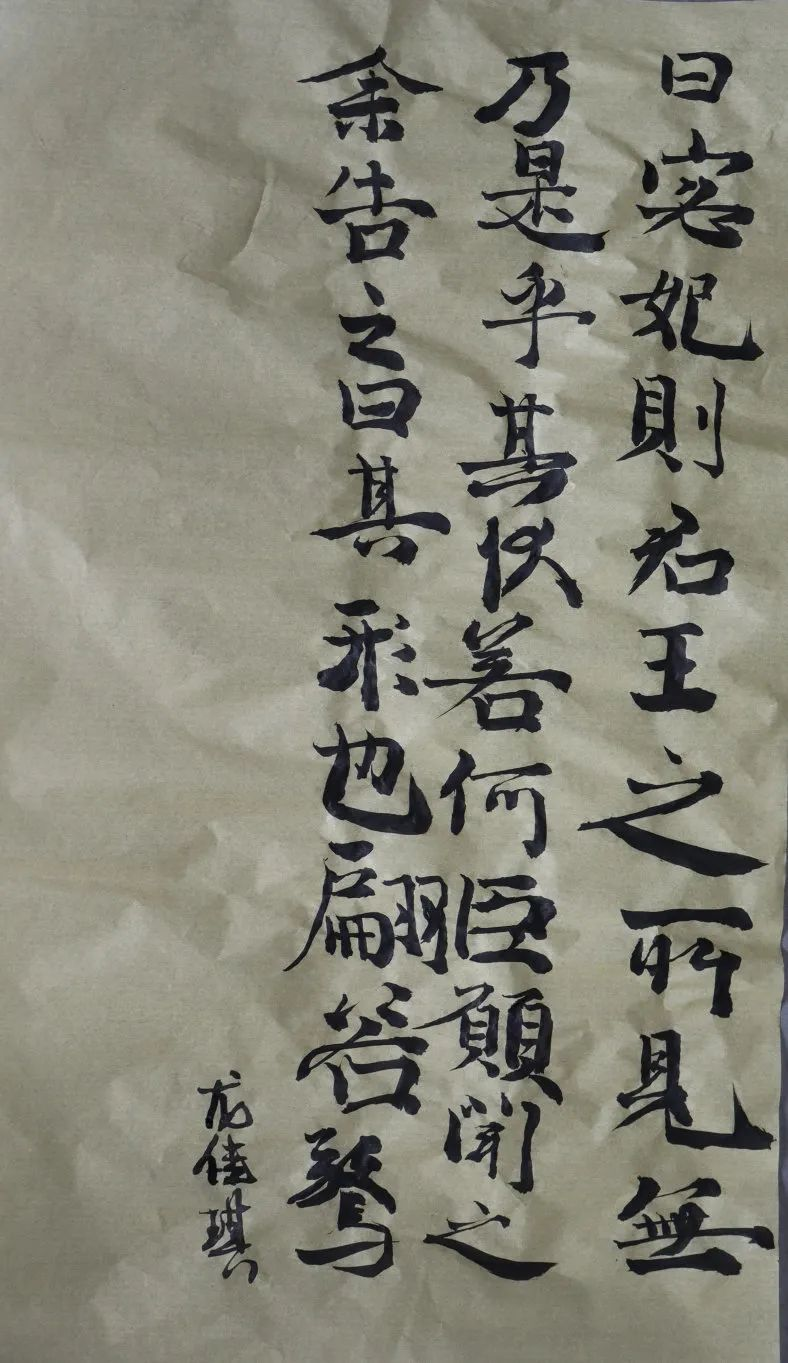 曰宓妃則君王之所見無
乃是乎其狀若何臣願聞之
余告之曰其形也翩若驚
佳琪